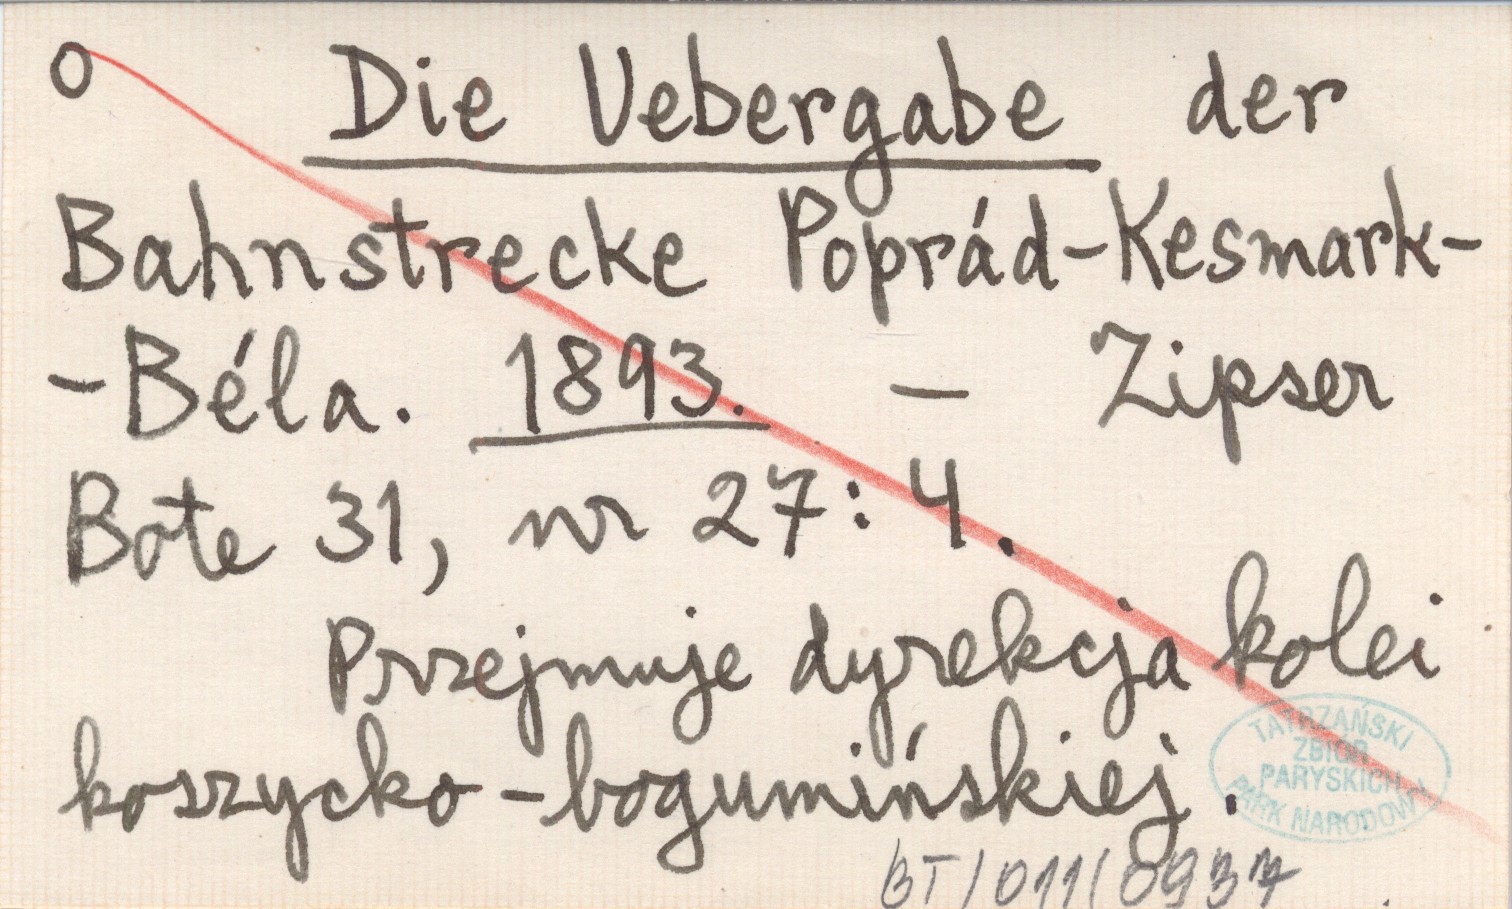 o Die Uebergabe der
Bahnstrecke Poprád-Kesmark-
-Béla. 1893. — Zipser
Bote 31, nr 27: 4.
Przejmuje dyrekcja kolei
koszycko-bogumińskiej.
TATRZAŃSKI
ZBIÓR
PARYSKICH
PARK NARODOWY
BT/011/0937